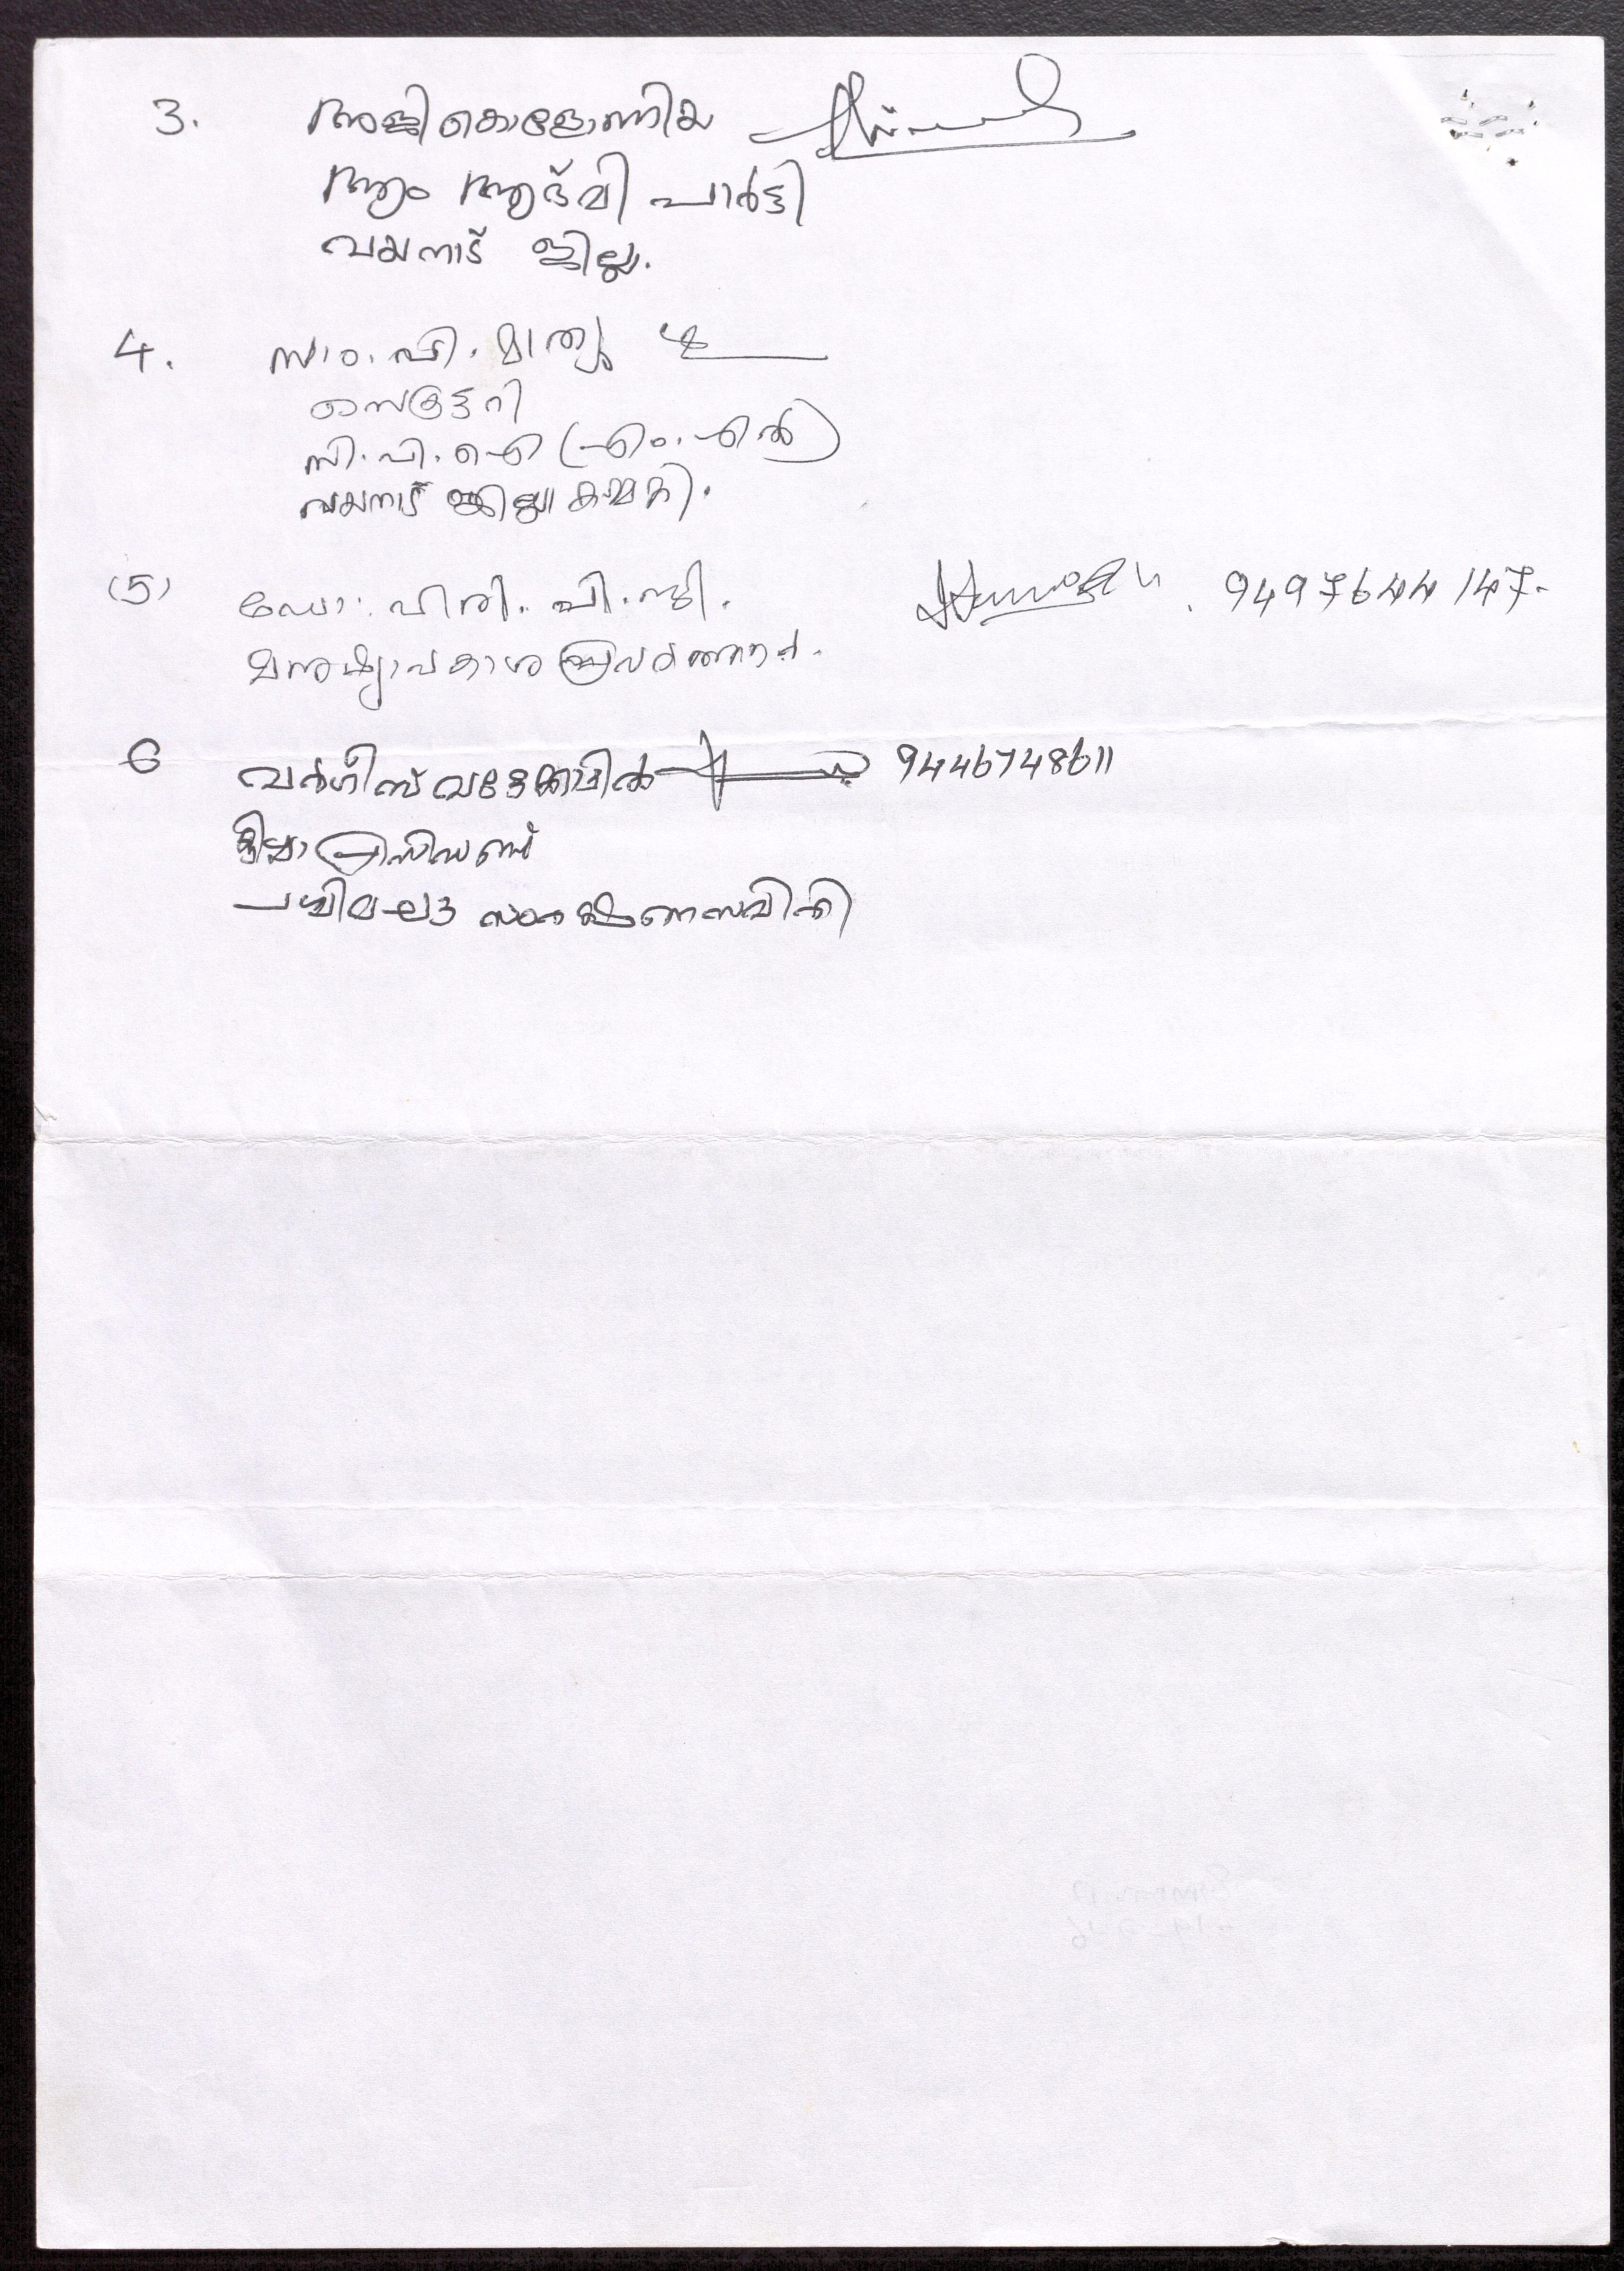 3. അജി കൊളോണിയ
ആം ആദ്മി പാർട്ടി
വയനാട് ജില്ല.
4. സാം. പി. മാത്യു
സെക്രട്ടറി
സി.പി.ഐ (എം.എൽ)
വയനാട് ജില്ലാ കമ്മറ്റി.
(5) ഡോ: പി.ജി. 9497644147.
മനുഷ്യാവകാശ പ്രവർത്തകൻ.
6 വർഗീസ് വട്ടേക്കാട്ടിൽ 9446748611
ജില്ലാ പ്രസിഡണ്ട്
പശ്ചിമഘട്ട സംരക്ഷണസമിതി